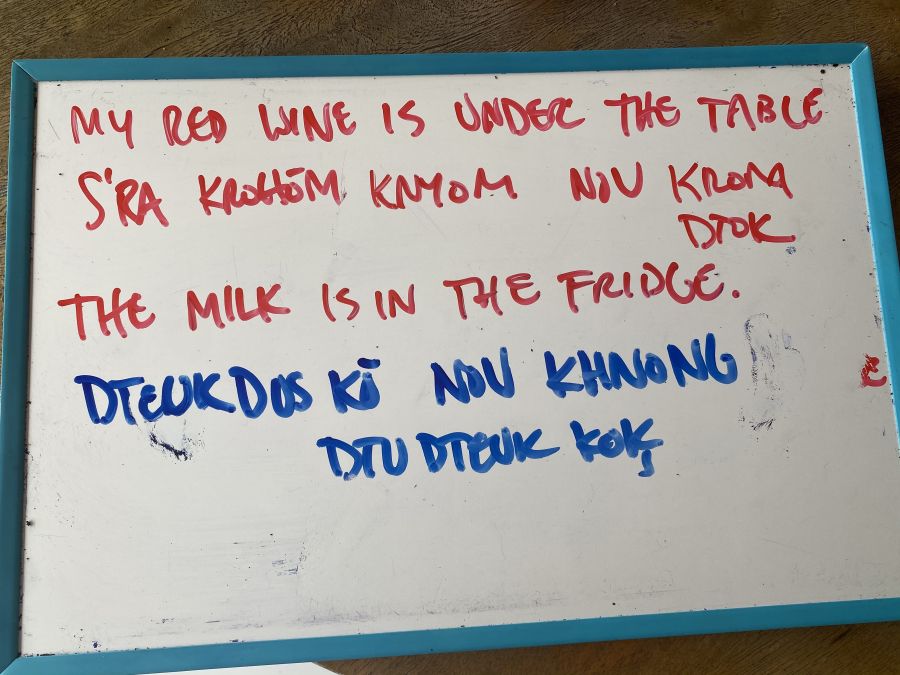 MY RED WINE IS UNDER THE TABLE
S'RA KROHŌM KNYOM NOV KROM
DTOK
THE MILK IS IN THE FRIDGE.
DTEUKDOS KŌ NOV KHNONG
DTU DTEUK KOK